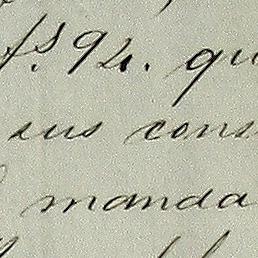 fs. 92. qu
sus cons
manda